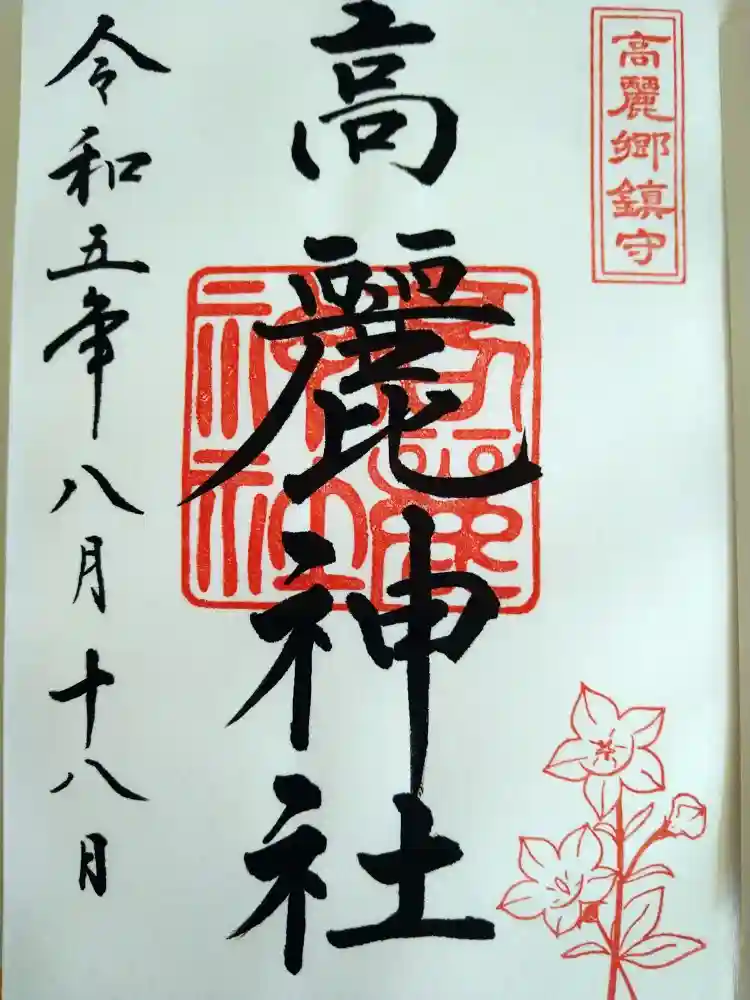 高麗郷鎮守
高麗神社
令和五年八月十八日
高麗神社